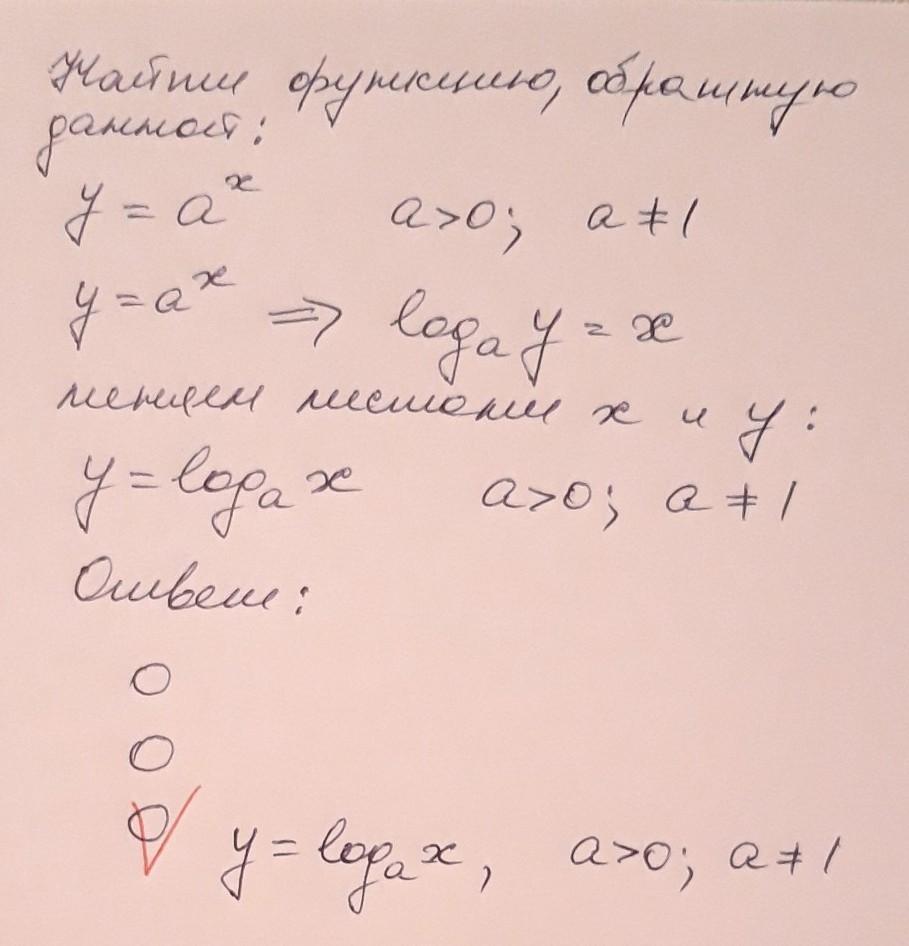 Найти функцию, обратную
данной:
y = aˣ a>0; a ≠ 1
y = aˣ ⇒ logₐ y = x
меняем местами x и y:
y = logₐ x a>0; a ≠ 1
Ответ:
y = logₐ x, a>0; a ≠ 1